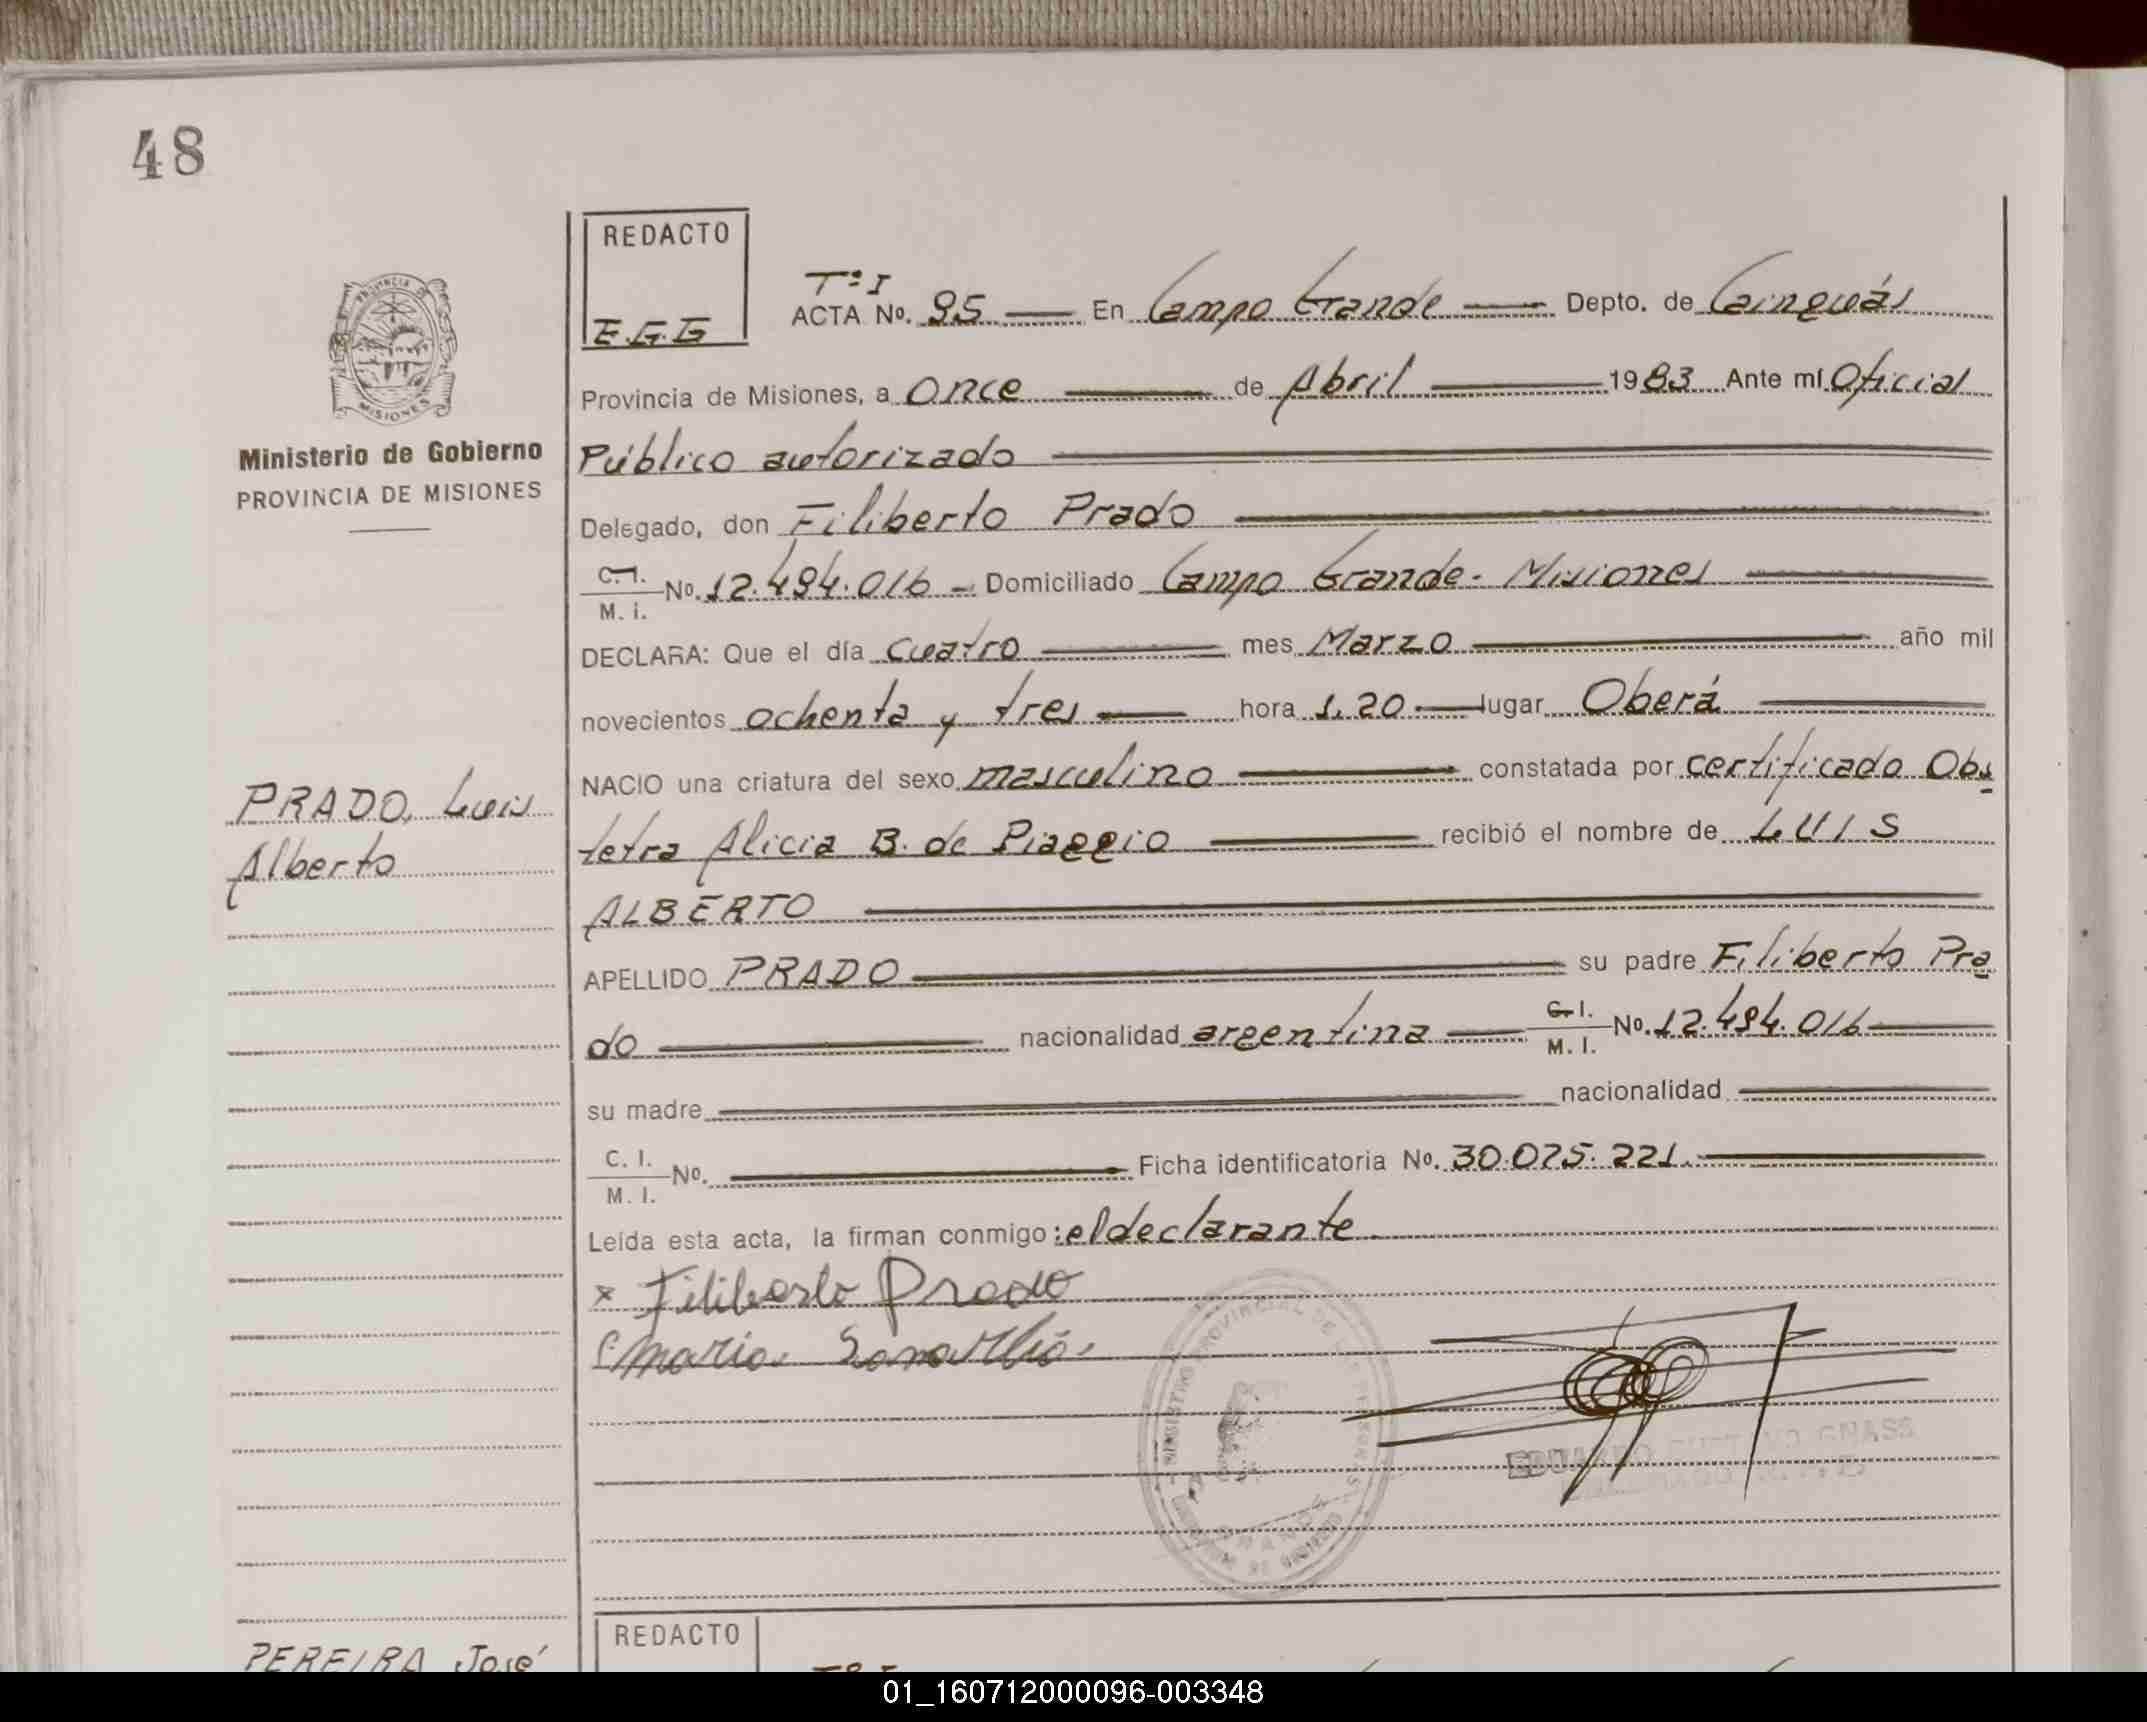 48
REDACTO
E.G.G
Tº I
ACTA Nº. 95 En Campo Grande Depto. de Cainguás
Provincia de Misiones, a once de Abril 1983 Ante mí Oficial
Público autorizado
Delegado, don Filiberto Prado
C.I. M.I. Nº. 12.494.016 Domiciliado Campo Grande - Misiones
DECLARA: Que el día cuatro mes Marzo año mil
novecientos ochenta y tres hora 1,20 lugar Oberá
NACIO una criatura del sexo masculino constatada por certificado Obs
tetra Alicia B. de Piaggio recibió el nombre de LUIS
ALBERTO
APELLIDO PRADO su padre Filiberto Pra
do nacionalidad argentina C.I. M.I. Nº. 12.494.016
su madre nacionalidad
C.I. M.I. Nº. Ficha identificatoria Nº. 30.075.221.
Leída esta acta, la firman conmigo: el declarante.
x Filiberto Prado
Maria
MISIONES
Ministerio de Gobierno
PROVINCIA DE MISIONES
PRADO, Luis
Alberto
REGISTRO PROVINCIAL DE LAS PERSONAS
EDUARDO GUSTAVO GNASS
PEREIRA José
REDACTO
01_160712000096-003348